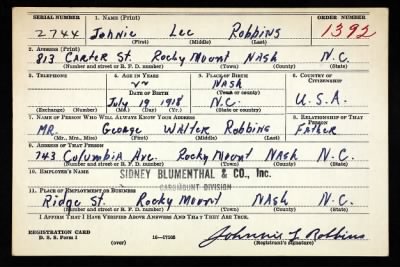 SERIAL NUMBER 1. NAME (Print) ORDER NUMBER
2744 Johnie Lee Robbins 1392
(First) (Middle) (Last)
2. ADDRESS (Print)
813 Carter St. Rocky Mount Nash N.C.
(Number and street or R. F. D. number) (Town) (County) (State)
3. TELEPHONE 4. AGE IN YEARS 5. PLACE OF BIRTH 6. COUNTRY OF CITIZENSHIP
22 Nash
DATE OF BIRTH (Town or county)
July 19 1918 N.C. U.S.A.
(Exchange) (Number) (Mo.) (Day) (Yr.) (State or country)
7. NAME OF PERSON WHO WILL ALWAYS KNOW YOUR ADDRESS 8. RELATIONSHIP OF THAT PERSON
MR. George Walter Robbins Father
(Mr., Mrs., Miss) (First) (Middle) (Last)
9. ADDRESS OF THAT PERSON
743 Columbia Ave. Rocky Mount Nash N.C.
(Number and street or R. F. D. number) (Town) (County) (State)
10. EMPLOYER'S NAME
SIDNEY BLUMENTHAL & CO., Inc.
CAROMOUNT DIVISION
11. PLACE OF EMPLOYMENT OR BUSINESS
Ridge St. Rocky Mount Nash N.C.
(Number and street or R. F. D. number) (Town) (County) (State)
I AFFIRM THAT I HAVE VERIFIED ABOVE ANSWERS AND THAT THEY ARE TRUE.
REGISTRATION CARD
D. S. S. Form 1 (over) Johnnie L Robbins
(Registrant's signature)